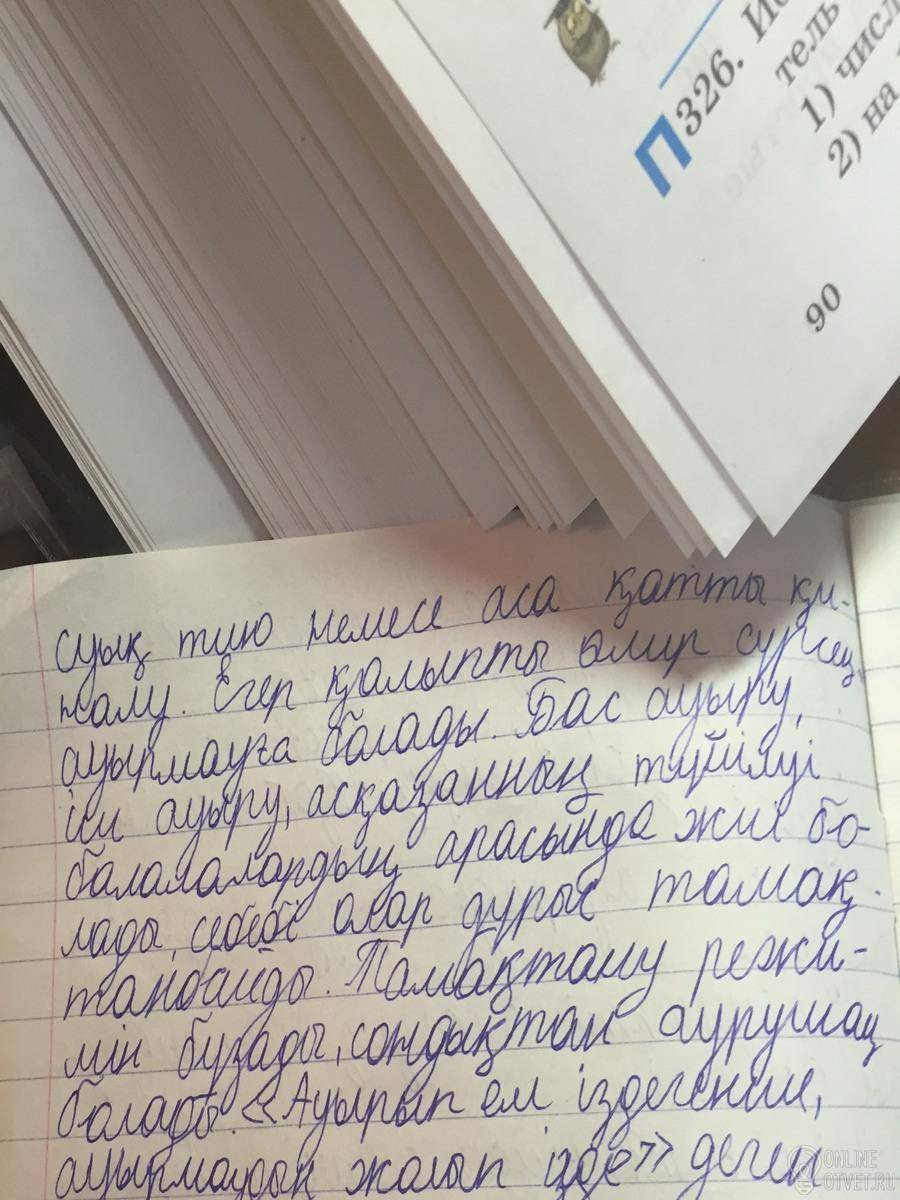 П 326. Ис
тель
1) числ
2) на
90
суық тию немесе аса қатты қи-
налу. Егер қалыпты өмир сүрсең,
ауырмауға болады. Бас ауыру,
іш ауыру, асқазанның түйілуі
балалалардың арасында жиі бо-
лады, себебі олар дұрыс тамақ-
танбайды. Тамақтану режи-
мін бұзады, сондықтан аурушаң
болады. «Ауырып ем іздегенше,
ауырмаудың жолын ізде» деген
ONLINE
OTVET.RU